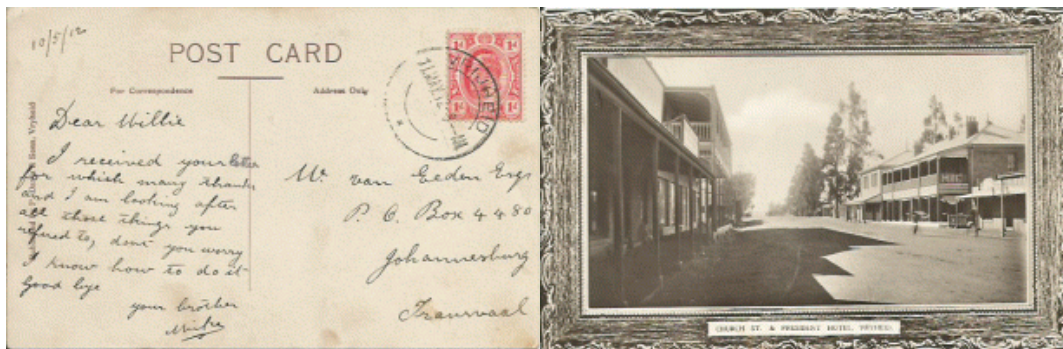 10/5/12
POST CARD
For Correspondence
Address Only
1d 1d
1d 1d
Dear Willie
I received your letter
for which many thanks
and I am looking after
all those things you
refered to, dont you worry
I know how to do it
Good bye
your brother
Mike
W. van Eeden Esqr
P. O. Box 4480
Johannesburg
Transvaal
Sons, Vryheid
VRYHEID
CHURCH ST. & PRESIDENT HOTEL, VRYHEID.